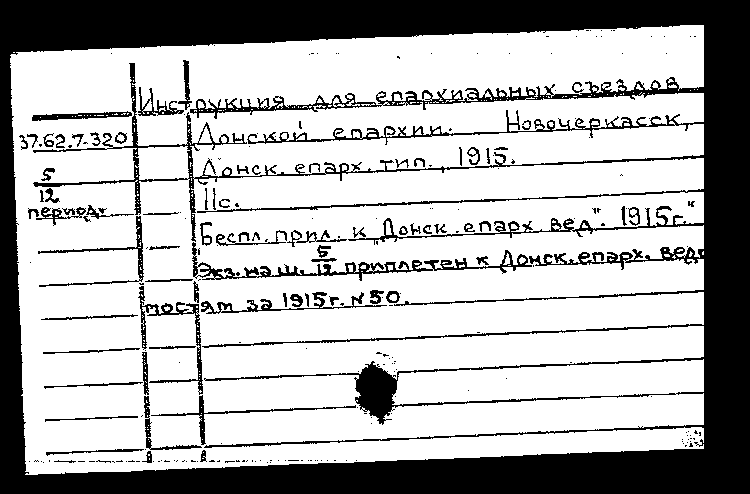 Инструкция для епархиальных съездов
37.62.7.320 Донской епархии. Новочеркасск,
5/12 Донск. епарх. тип., 1915.
период. 11с.
Беспл. прил. к "Донск. епарх. вед". 1915г."
Экз. на ш. 5/12 приплетен к Донск. епарх. ведо
мостям за 1915г. N 50.